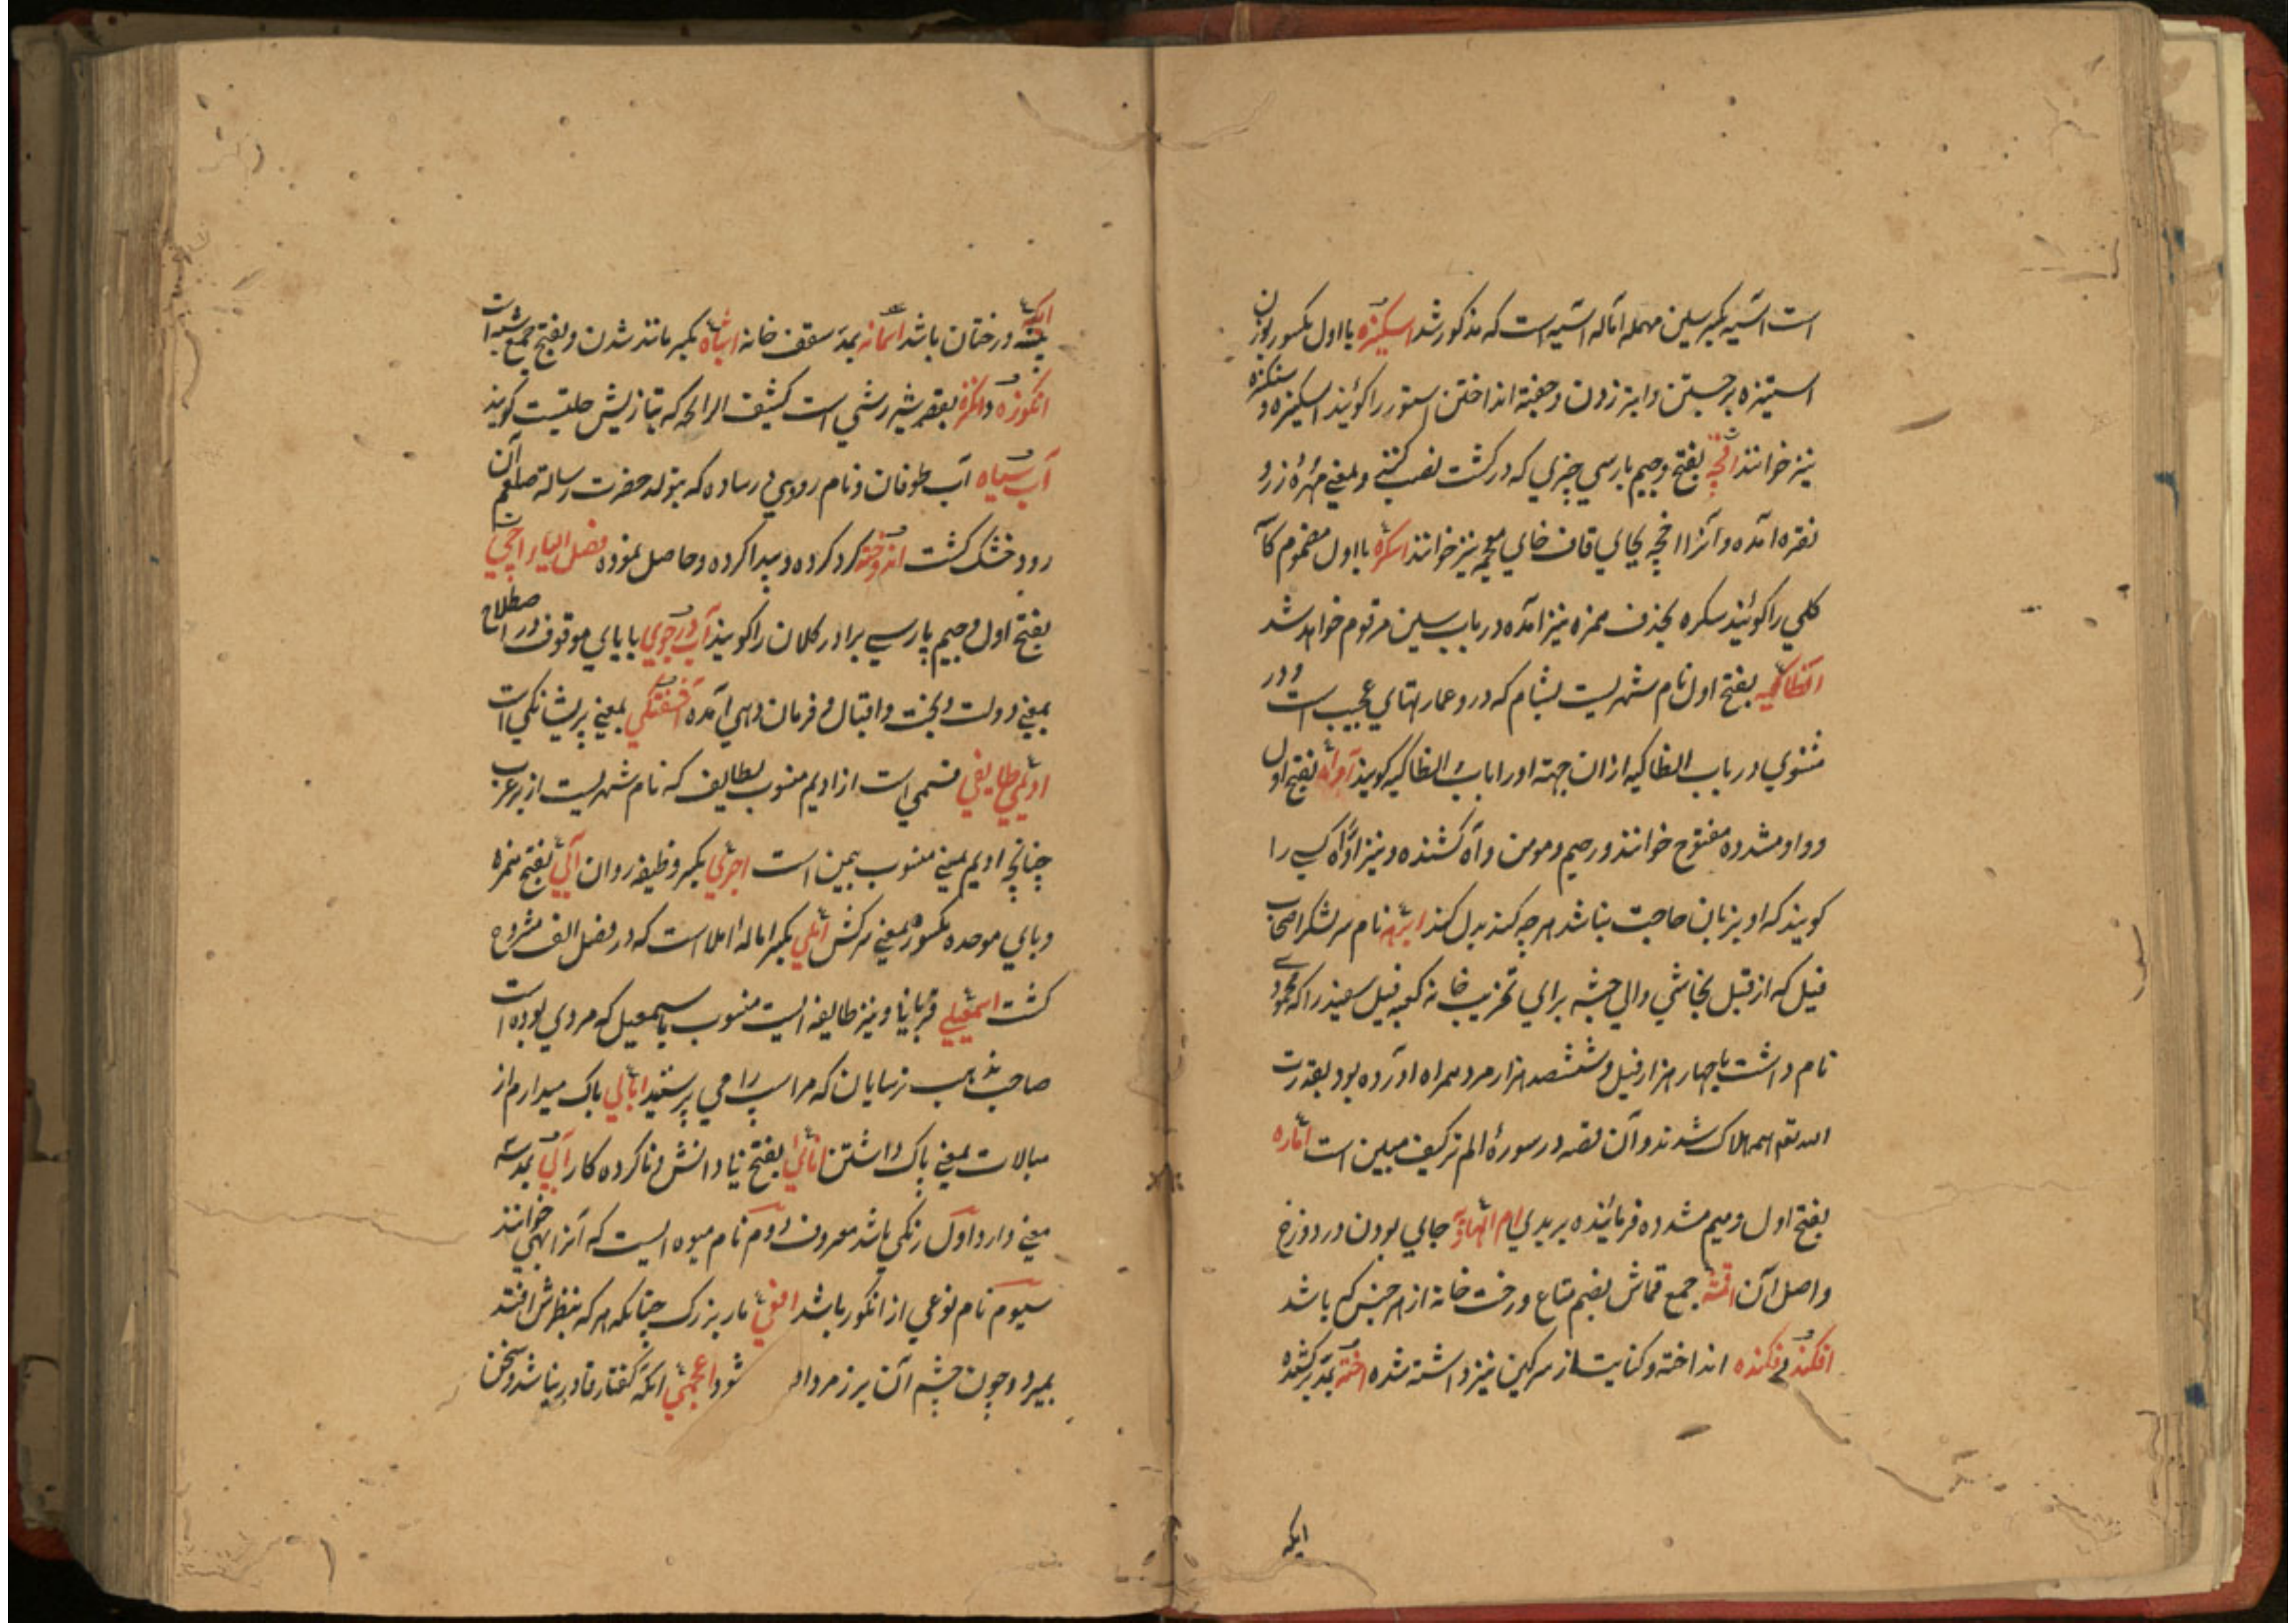 است آسیه بکسر سین مهمله اماله آسیه است که مذکور شد اسکیزه با اول مکسور بوزن
استیزه برجستن و ایز زدن و جفته انداختن استور را کویند اسکیزه و سنکزه
نیز خوانند اقچه بفتح و جیم پارسی چیزی که در کشت نصب کنند و بمعنی مهرهٔ زر و
نقره آمده و آنرا اخچه بجای قاف خای معجمه نیز خوانند اسکره با اول مضموم کاسهٔ
کلی را کویند سکره بحذف همزه نیز آمده در باب سین مرقوم خواهد شد
انطاکیه بفتح اول نام شهریست بشام که درو عمارتهای عجیب است و در
مثنوی در باب انطاکیه ازان جهته او را باب انطاکیه کویند اواه بفتح اول
و واو مشدده مفتوح خوانند و رحیم و مومن و آه کشنده و نیز اواه کسی را
کویند که او بزبان حاجت نباشد هرچه کند بدل کند ابرهه نام سر لشکر اصحاب
فیل که از قبل نجاشی والی حبشه برای تخریب خانه کعبه فیل سفید را که محمودی
نام داشت با چهار هزار فیل و ششصد هزار مرد همراه آورده بود بقدرت
الله تع همه هلاک شدند و آن قصه در سورهٔ الم تر کیف مبین است اماره
بفتح اول و میم مشدده فرمائنده ببدی ام الهاویه جای بودن در دوزخ
و اصل آن اقمشه جمع قماش بضم متاع و رخت خانه از هر جنس که باشد
افکند و فکنده انداخته و کنایت از سرکین نیز داشته شده اخته بمد برکشیده
ایکه
ایکه بیشه درختان باشد اسمانه بمد سقف خانه اشباه بکسر مانند شدن و بفتح جمع شبه است
انکوزه و انکزه بقصر شیر رشی است کثیف الرائحه که بتازیش حلتیت کویند
آب سیاه آب طوفان و نام رودی در ساوه که بتولد حضرت رسالة صلعم آن
رود خشک کشت اندوخته کرد کرده و پیدا کرده و حاصل نموده فصل الیا اچی
بفتح اول و جیم پارسی برادر کلان را کویند آب در جوی با بای موقوف در اصطلاح
بمعنی دولت و بخت و اقبال و فرمان دهی آمده آشفتکی بمعنی پریشانکی است
ادیمی طایفی قسمی است از ادیم منسوب بطایف که نام شهریست از بر عرب
چنانچه ادیم یمینی منسوب بیمن است اجری بکسر وظیفه روان آبی بفتح همزه
و بای موحده مکسور بمعنی سرکش املی بکسر اماله املا است که در فصل الف مشروح
کشت اسمعیلی قربانیا و نیز طایفه ایست منسوب باسمعیل که مردی بوده است
صاحب مذهب ترسایان که مر اسپ را می پرستید ابالی باک میدارم از
مبالات بمعنی باک داشتن انائی بفتح نیا دانش و ناکرده کار آبی بمد سه
معنی دارد اول رنکی باشد معروف دوم نام میوه ایست که آنرا بهی خوانند
سیوم نام نوعی از انکور باشد افعی مار بزرک چنانکه هر که بنظرش افتد
بمیرد و چون چشم آن بر زمرد افتد شود اعجمی آنکه کفتار قادر نباشد و سخن